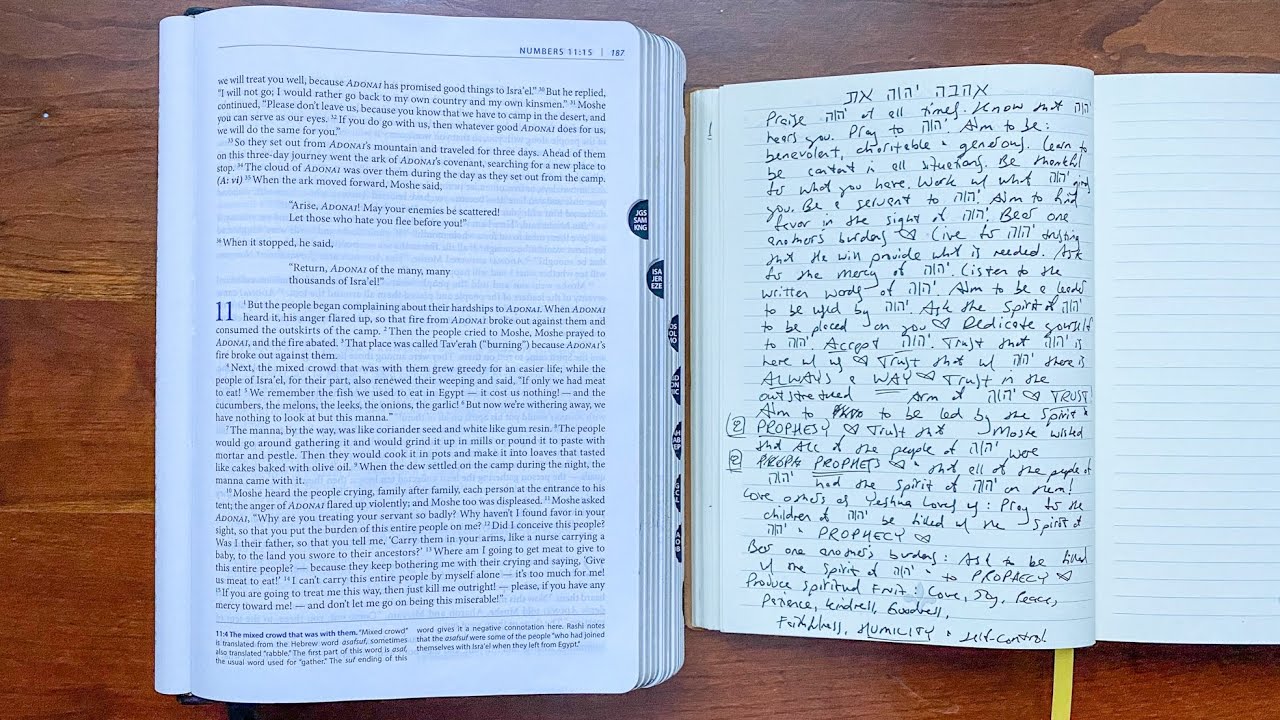 NUMBERS 11:15 | 187
we will treat you well, because ADONAI has promised good things to Isra'el." 30 But he replied,
"I will not go; I would rather go back to my own country and my own kinsmen." 31 Moshe
continued, "Please don't leave us, because you know that we have to camp in the desert, and
you can serve as our eyes. 32 If you do go with us, then whatever good ADONAI does for us,
we will do the same for you."
33 So they set out from ADONAI's mountain and traveled for three days. Ahead of them
on this three-day journey went the ark of ADONAI's covenant, searching for a new place to
stop. 34 The cloud of ADONAI was over them during the day as they set out from the camp.
(A: vi) 35 When the ark moved forward, Moshe said,
"Arise, ADONAI! May your enemies be scattered!
Let those who hate you flee before you!"
36 When it stopped, he said,
"Return, ADONAI of the many, many
thousands of Isra'el!"
11 1 But the people began complaining about their hardships to ADONAI. When ADONAI
heard it, his anger flared up, so that fire from ADONAI broke out against them and
consumed the outskirts of the camp. 2 Then the people cried to Moshe, Moshe prayed to
ADONAI, and the fire abated. 3 That place was called Tav'erah ("burning") because ADONAI's
fire broke out against them.
4 Next, the mixed crowd that was with them grew greedy for an easier life; while the
people of Isra'el, for their part, also renewed their weeping and said, "If only we had meat
to eat! 5 We remember the fish we used to eat in Egypt — it cost us nothing! — and the
cucumbers, the melons, the leeks, the onions, the garlic! 6 But now we're withering away, we
have nothing to look at but this manna."
7 The manna, by the way, was like coriander seed and white like gum resin. 8 The people
would go around gathering it and would grind it up in mills or pound it to paste with
mortar and pestle. Then they would cook it in pots and make it into loaves that tasted
like cakes baked with olive oil. 9 When the dew settled on the camp during the night, the
manna came with it.
10 Moshe heard the people crying, family after family, each person at the entrance to his
tent; the anger of ADONAI flared up violently; and Moshe too was displeased. 11 Moshe asked
ADONAI, "Why are you treating your servant so badly? Why haven't I found favor in your
sight, so that you put the burden of this entire people on me? 12 Did I conceive this people?
Was I their father, so that you tell me, 'Carry them in your arms, like a nurse carrying a
baby, to the land you swore to their ancestors?' 13 Where am I going to get meat to give to
this entire people? — because they keep bothering me with their crying and saying, 'Give
us meat to eat!' 14 I can't carry this entire people by myself alone — it's too much for me!
15 If you are going to treat me this way, then just kill me outright! — please, if you have any
mercy toward me! — and don't let me go on being this miserable!"
11:4 The mixed crowd that was with them. "Mixed crowd"
it translated from the Hebrew word asafsuf, sometimes
also translated "rabble." The first part of this word is asaf,
the usual word used for "gather." The suf ending of this
word gives it a negative connotation here. Rashi notes
that the asafsuf were some of the people "who had joined
themselves with Isra'el when they left from Egypt."
JGS
SAM
KNG
ISA
JER
EZE
אהבה יהוה את
Praise יהוה at all times. Know that יהוה
hears you. Pray to יהוה. Aim to be:
benevolent, charitable + generous. Learn to
be content in all situations. Be thankful
for what you have. Work w/ what יהוה gives
you. Be a servant to יהוה. Aim to find
favor in the sight of יהוה. Bear one
another's burdens ♡ Live for יהוה trusting
that He will provide what is needed. Ask
for the mercy of יהוה. Listen to the
written words of יהוה. Aim to be a leader
to be used by יהוה. Ask the Spirit of יהוה
to be placed on you ♡ Dedicate yourself
to יהוה. Accept יהוה. Trust that יהוה is
here w/ us ♡ Trust that w/ יהוה there is
ALWAYS a WAY ♡ Trust in the
outstretched Arm of יהוה ♡ TRUST!
Aim to to be led by the Spirit +
PROPHESY ♡ Trust that Moshe wished
that all of the people of יהוה were
PROPHETS ♡ + that all of the people of
יהוה had the Spirit of יהוה on them!
Love others as Yeshua loves us: Pray for the
children of יהוה be filled w/ the Spirit of
יהוה + PROPHECY ♡
Bear one another's burdens: Ask to be filled
w/ the Spirit of יהוה + to PROPHECY ♡
Produce spiritual Fruit: Love, Joy, Peace,
Patience, Kindness, Goodness,
Faithfulness, HUMILITY + Self-control